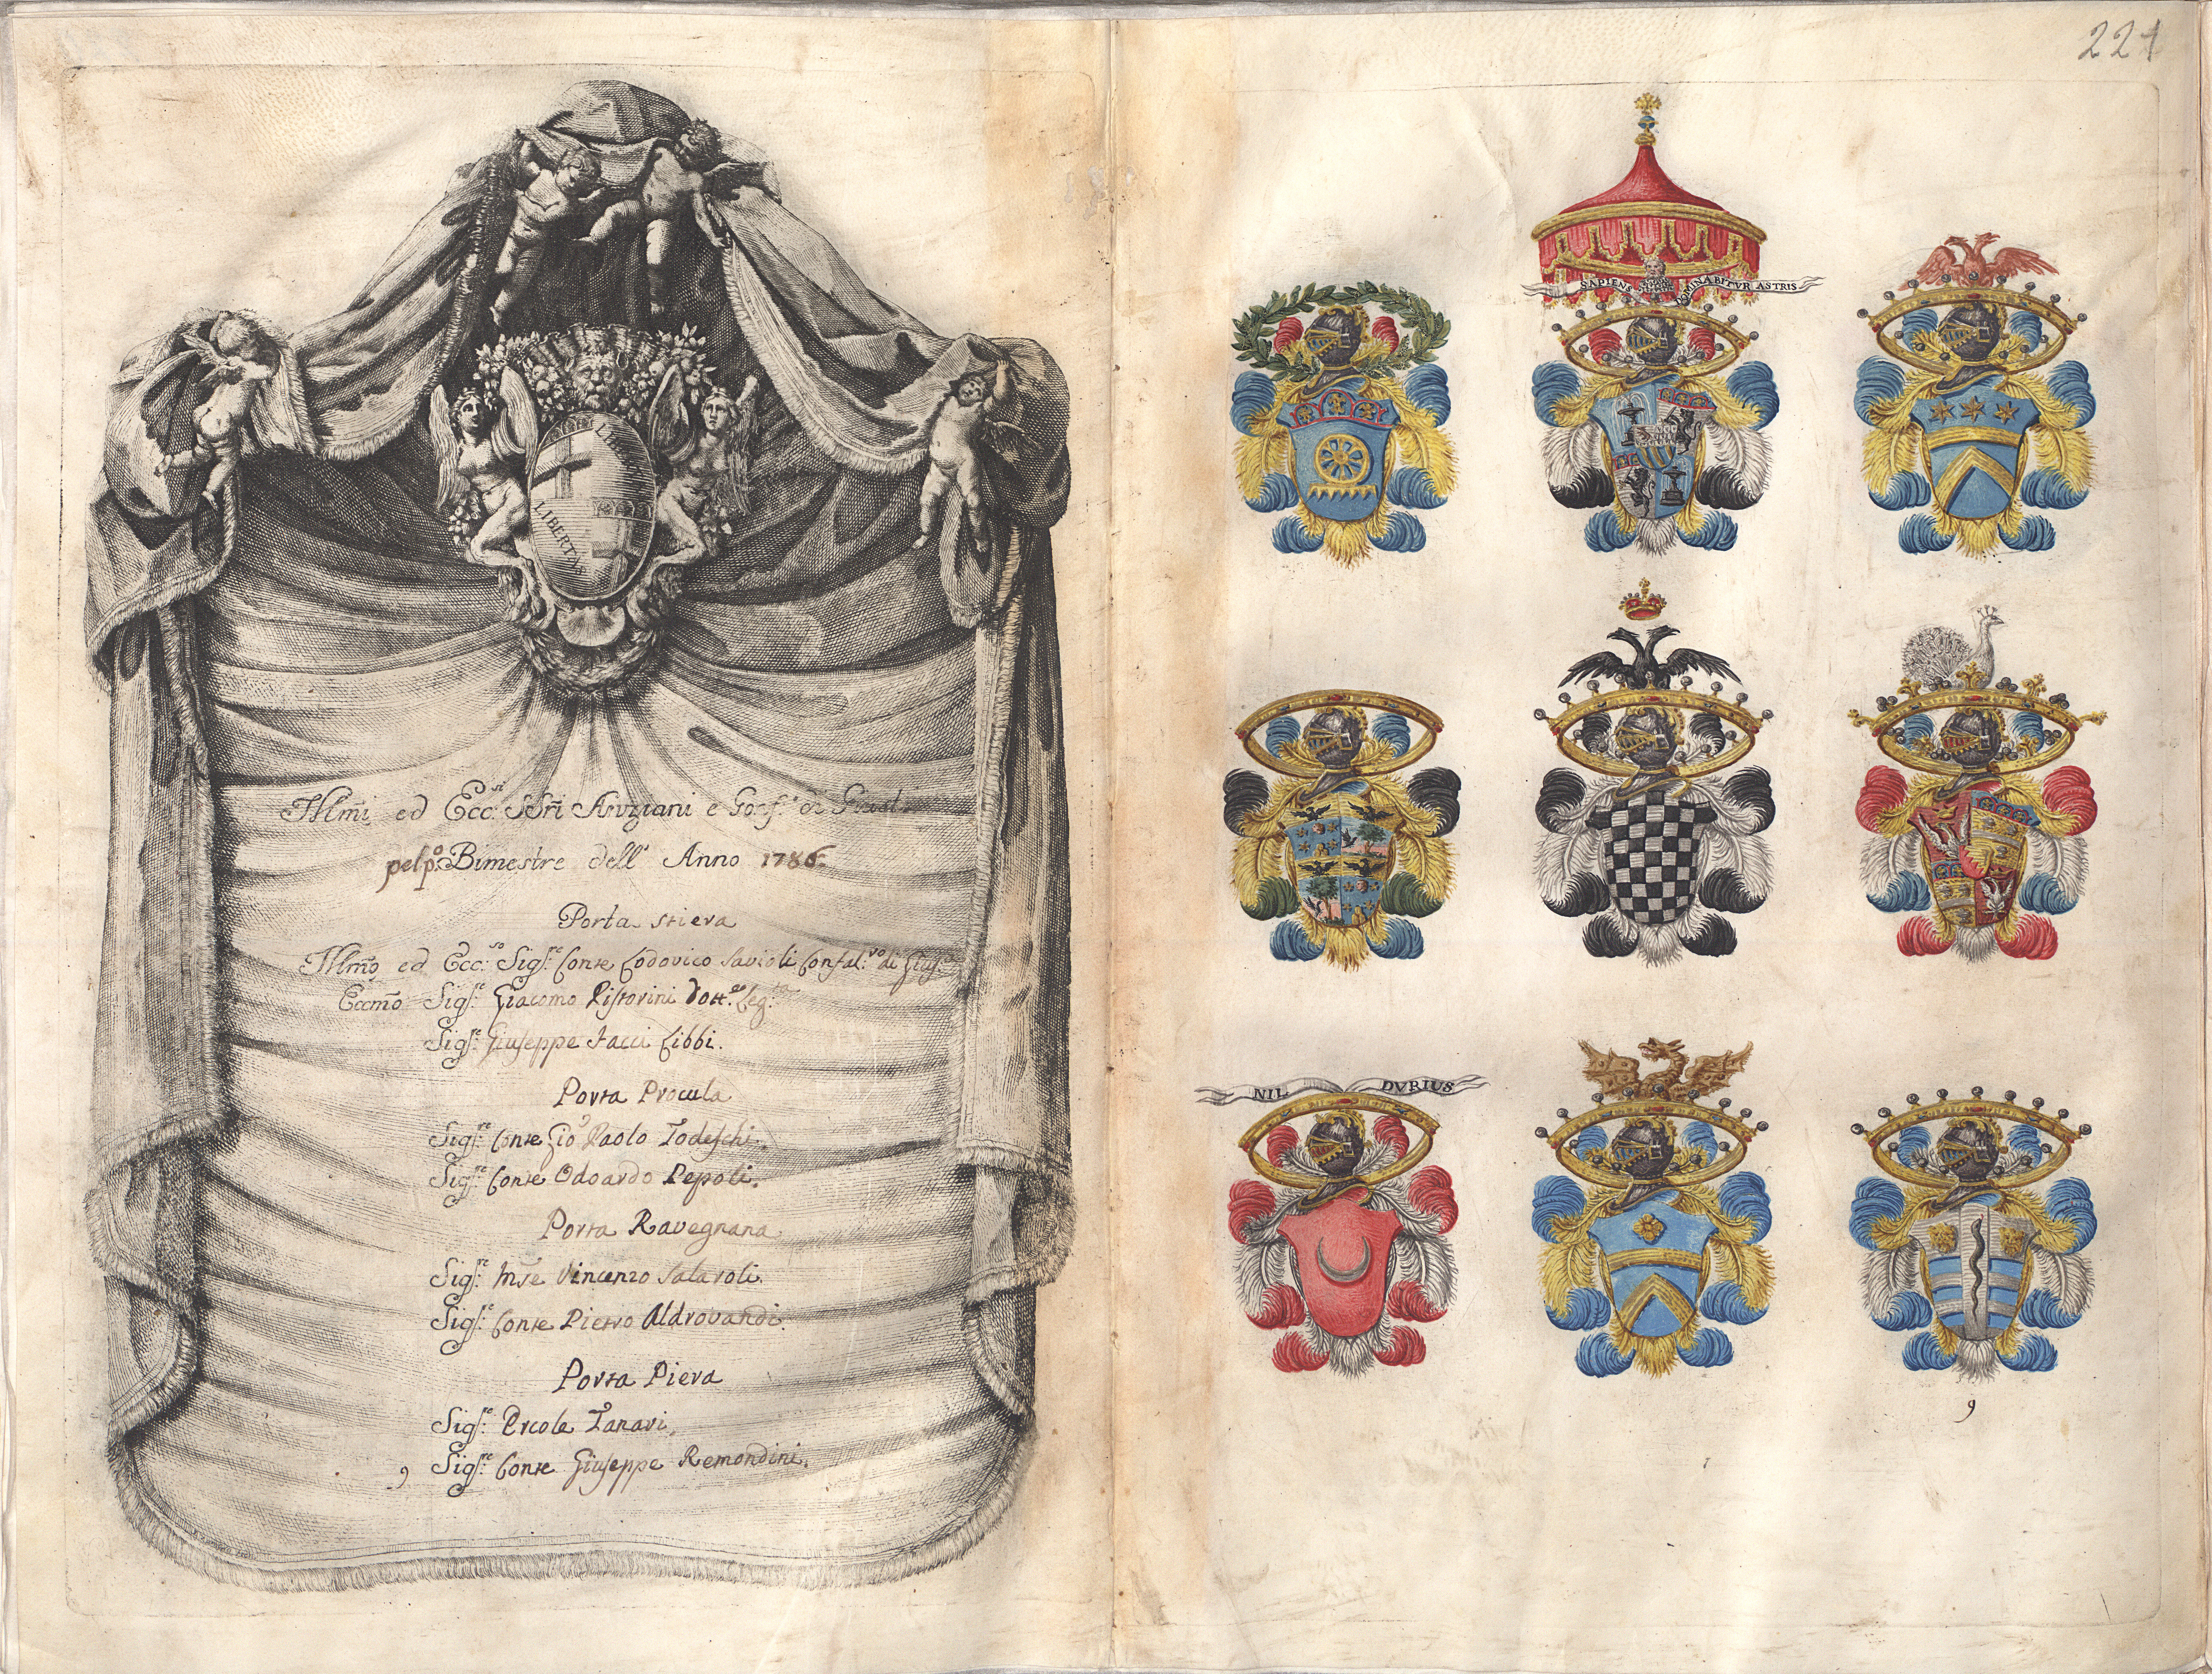 221
LIBERTAS
LIBERTAS
Jllm̃i ed Ecc.si SSri Anziani e Gonf.i di Giust.
pel p.o Bimestre dell' Anno 1786.
Porta stiera
Jllm̃o ed Ecc.so Sig.re Conte Lodovico Savioli Confal.ro di Giust.
Eccmõ Sig.re Giacomo Pistorini Dott.re Leg.ta
Sig.re Giuseppe Jacci Libbi.
Porta Procula
Sig.re Conte Gio Paolo Todeschi.
Sig.re Conte Odoardo Pepoli.
Porta Ravegnana
Sig.re Vincenzo Salaroli.
Sig.re Conte Pietro Aldrovandi.
Porta Piera
Sig.re Ercole Tanari,
9 Sig.re Conte Giuseppe Remondini.
SAPIENS DOMINABITVR ASTRIS
NIL DVRIUS
9